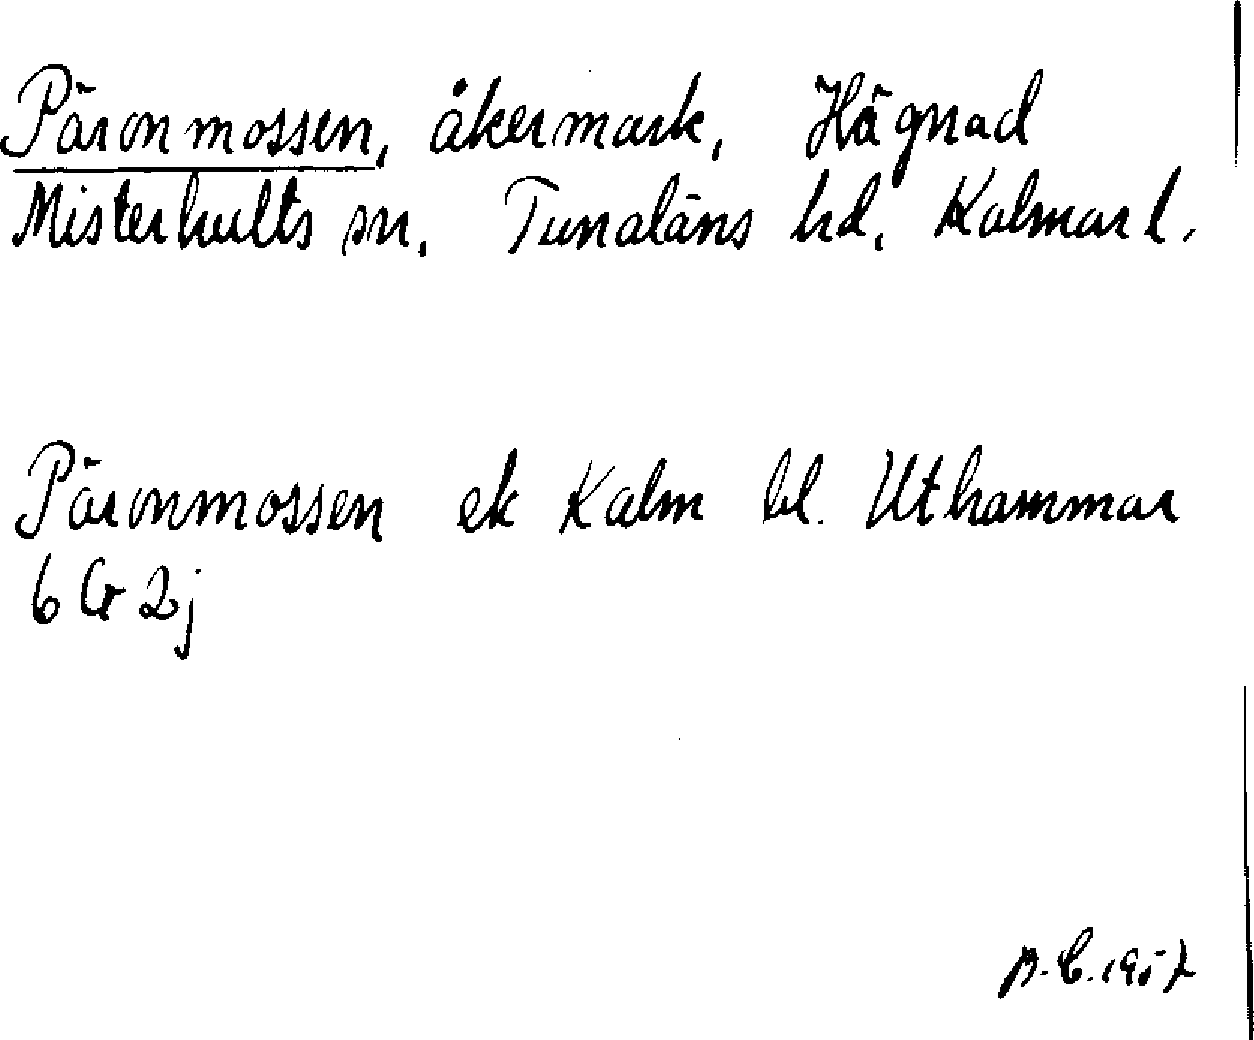 Päronmossen, åkermark, Hägnad
Misterhults sn. Tunaläns hd. Kalmar l.
Päronmossen ek Kalm bl. Uthammar
6 G 2j
B.C. 1957